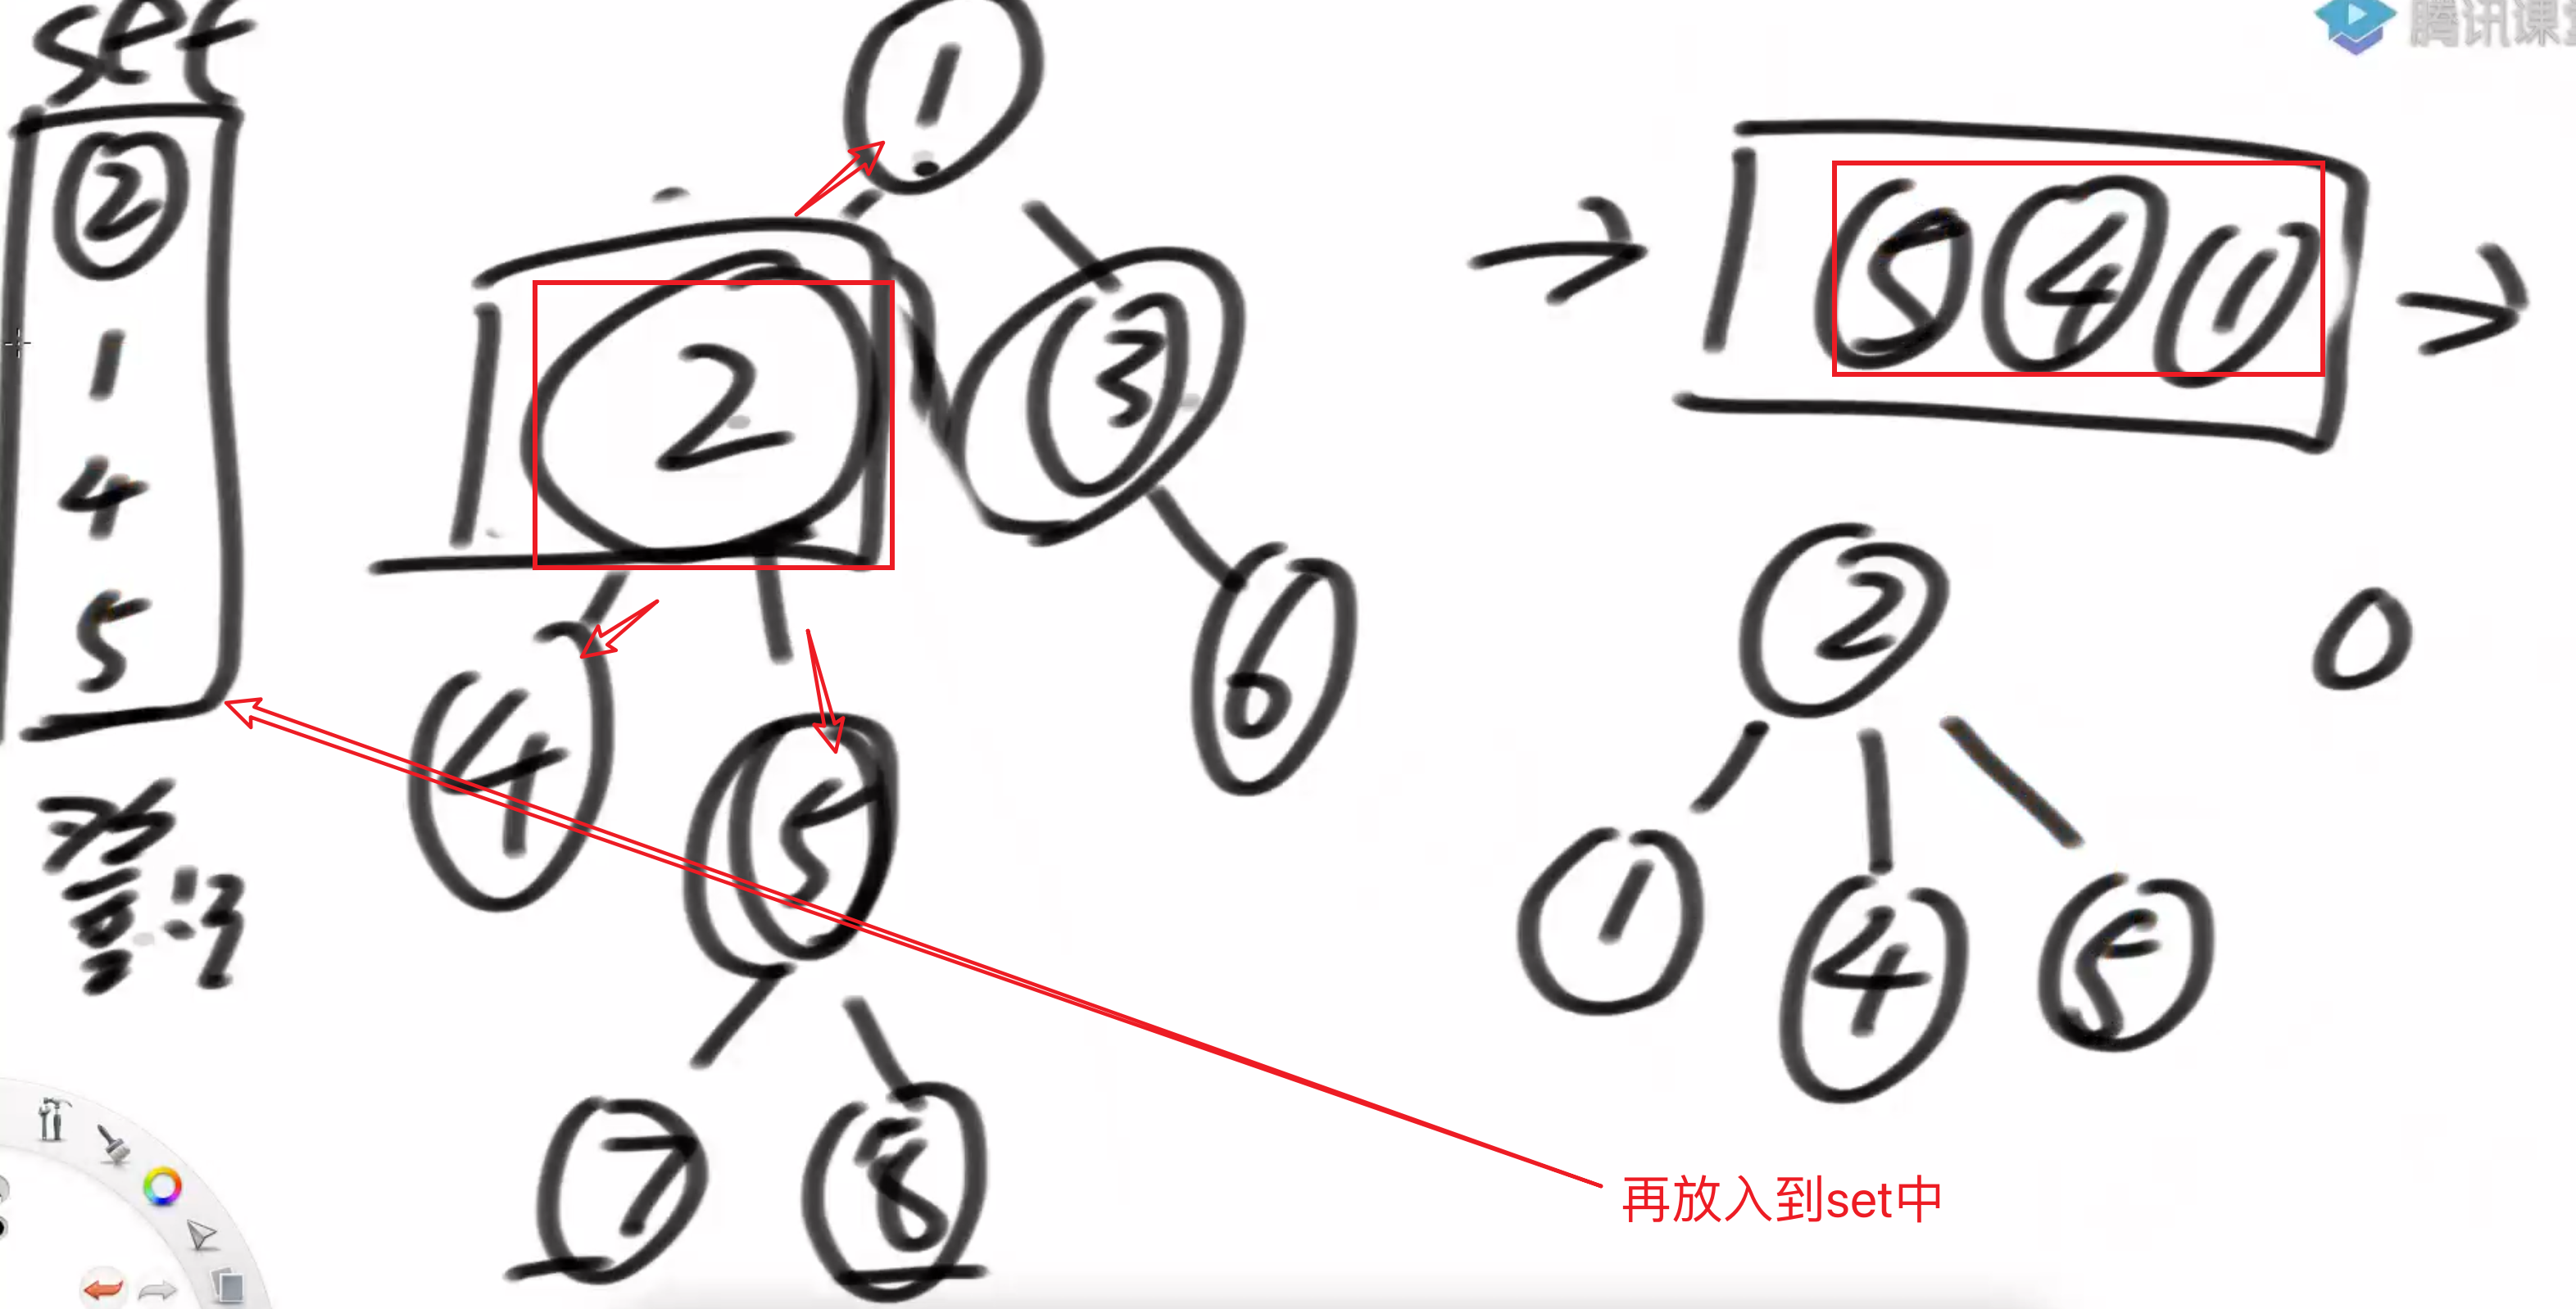 set
②
1
4
5
1
2
3
4
5
6
7
8
5 4 1
2
0
1 4 5
再放入到set中
腾讯课